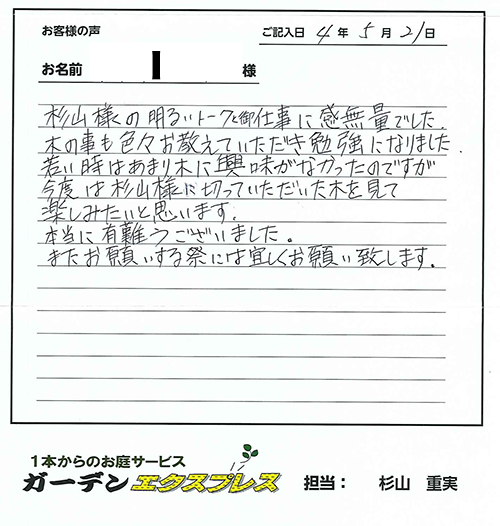 お客様の声
ご記入日 4年 5月 21日
お名前 様
杉山様の明るいトークと御仕事に感無量でした.
木の事も色々お教えていただき勉強になりました.
若い時はあまり木に興味がなかったのですが
今度は杉山様に切っていただいた木を見て
楽しみたいと思います.
本当に有難うございました。
またお願いする祭には宜しくお願い致します.
1本からのお庭サービス
ガーデンエクスプレス 担当： 杉山 重実